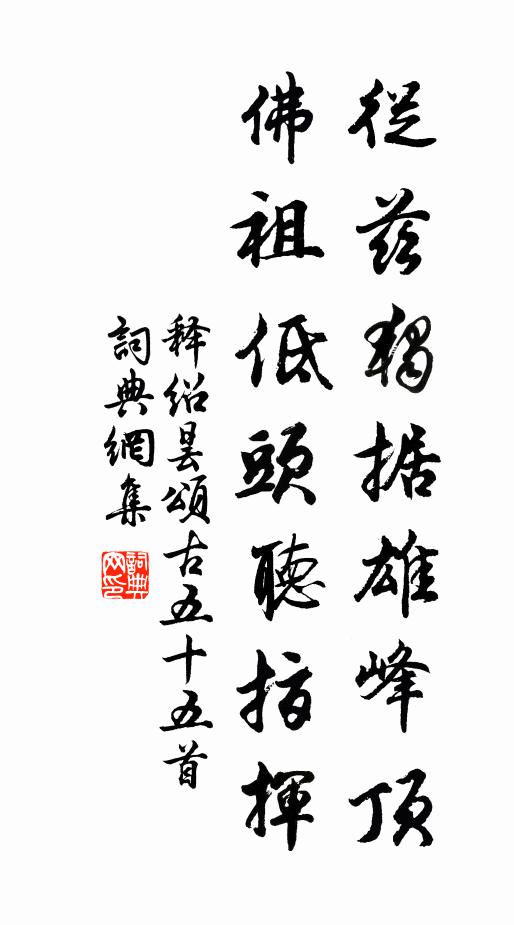 從茲獨据雄峰頂
佛祖低頭聽指揮
释绍昙頌古五十五首
詞典網集
詞典网印